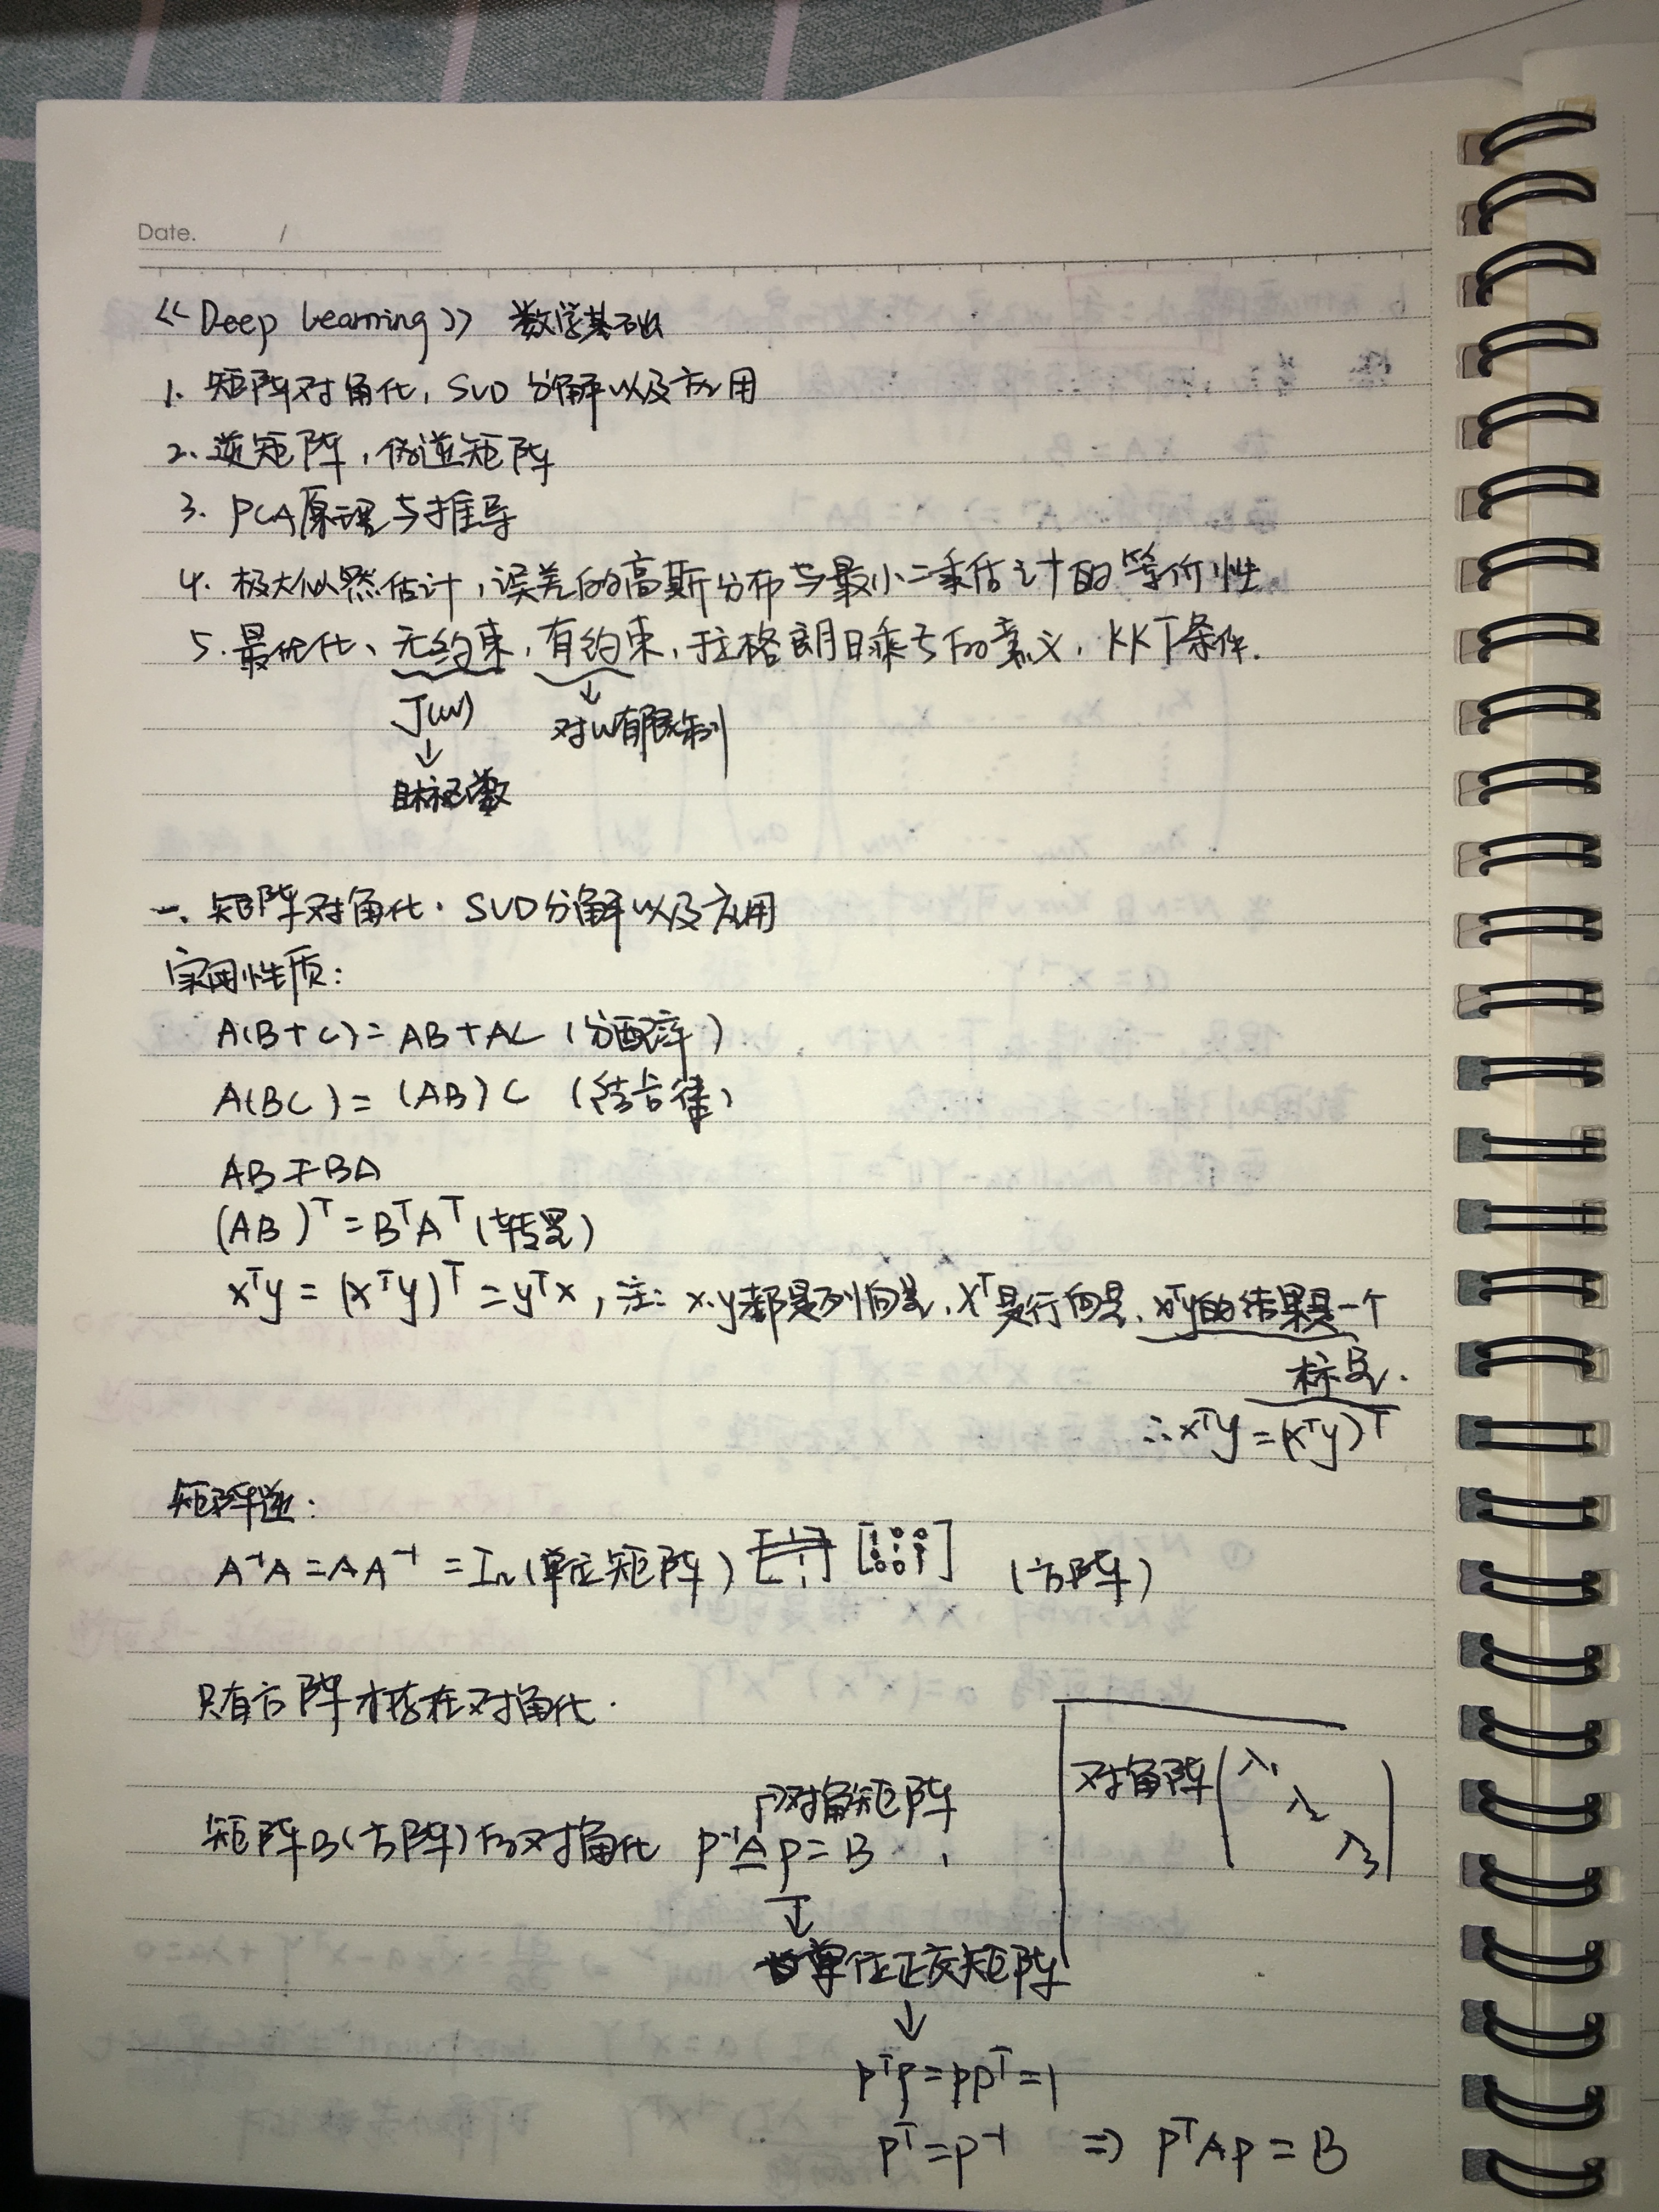 Date. /
《Deep Learning》 数学基础
1. 矩阵对角化, SVD分解以及应用
2. 逆矩阵, 伪逆矩阵
3. PCA原理与推导
4. 极大似然估计, 误差的高斯分布与最小二乘估计的等价性
5. 最优化、无约束, 有约束, 拉格朗日乘子的意义, KKT条件.
J(w) ↓ 对w有限制
↓
目标函数
一. 矩阵对角化. SVD分解以及应用
实用性质:
A(B+C)=AB+AC (分配率)
A(BC)=(AB)C (结合律)
AB≠BA
(AB)ᵀ=BᵀAᵀ(转置)
xᵀy=(xᵀy)ᵀ=yᵀx, 注: x.y都是列向量, xᵀ是行向量. xᵀy的结果是一个
标量.
∴xᵀy=(xᵀy)ᵀ
矩阵逆:
A⁻¹A=AA⁻¹=Iₙ(单位矩阵) [1 0 0 0 1 0 0 0 1] (方阵)
只有方阵才存在对角化.
对角矩阵
矩阵B(方阵)的对角化 P⁻¹AP=B,
对角阵(λ₁ λ₂ λ₃)
↓
单位正交矩阵
↓
PᵀP=PPᵀ=1
Pᵀ=P⁻¹ ⇒ PᵀAP=B